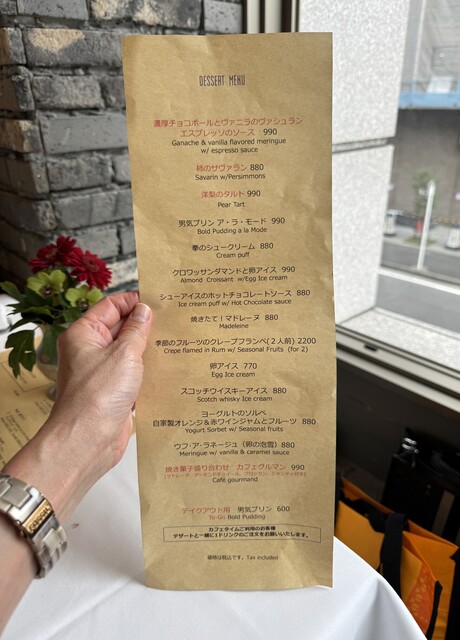 DESSERT MENU
濃厚チョコボールとヴァニラのヴァシュラン
エスプレッソのソース 990
Ganache & vanilla flavored meringue
w/ espresso sauce
柿のサヴァラン 880
Savarin w/Persimmons
洋梨のタルト 990
Pear Tart
男気プリン ア・ラ・モード 990
Bold Pudding a la Mode
拳のシュークリーム 880
Cream puff
クロワッサンダマンドと卵アイス 990
Almond Croissant w/Egg Ice cream
シューアイスのホットチョコレートソース 880
Ice cream puff w/ Hot Chocolate sauce
焼きたて！マドレーヌ 880
Madeleine
季節のフルーツのクレープフランベ(２人前) 2200
Crepe flamed in Rum w/ Seasonal Fruits (for 2)
卵アイス 770
Egg Ice cream
スコッチウイスキーアイス 880
Scotch whisky Ice cream
ヨーグルトのソルベ
自家製オレンジ＆赤ワインジャムとフルーツ 880
Yogurt Sorbet w/ Seasonal fruits
ウフ・ア・ラネージュ（卵の泡雪）880
Meringue w/ vanilla & caramel sauce
焼き菓子盛り合わせ カフェグルマン 990
Café gourmand
テイクアウト用 男気プリン 600
To-Go Bold Pudding
カフェタイムご利用のお客様
デザートと一緒に1ドリンクのご注文をお願いいたします。
価格は税込です。Tax included